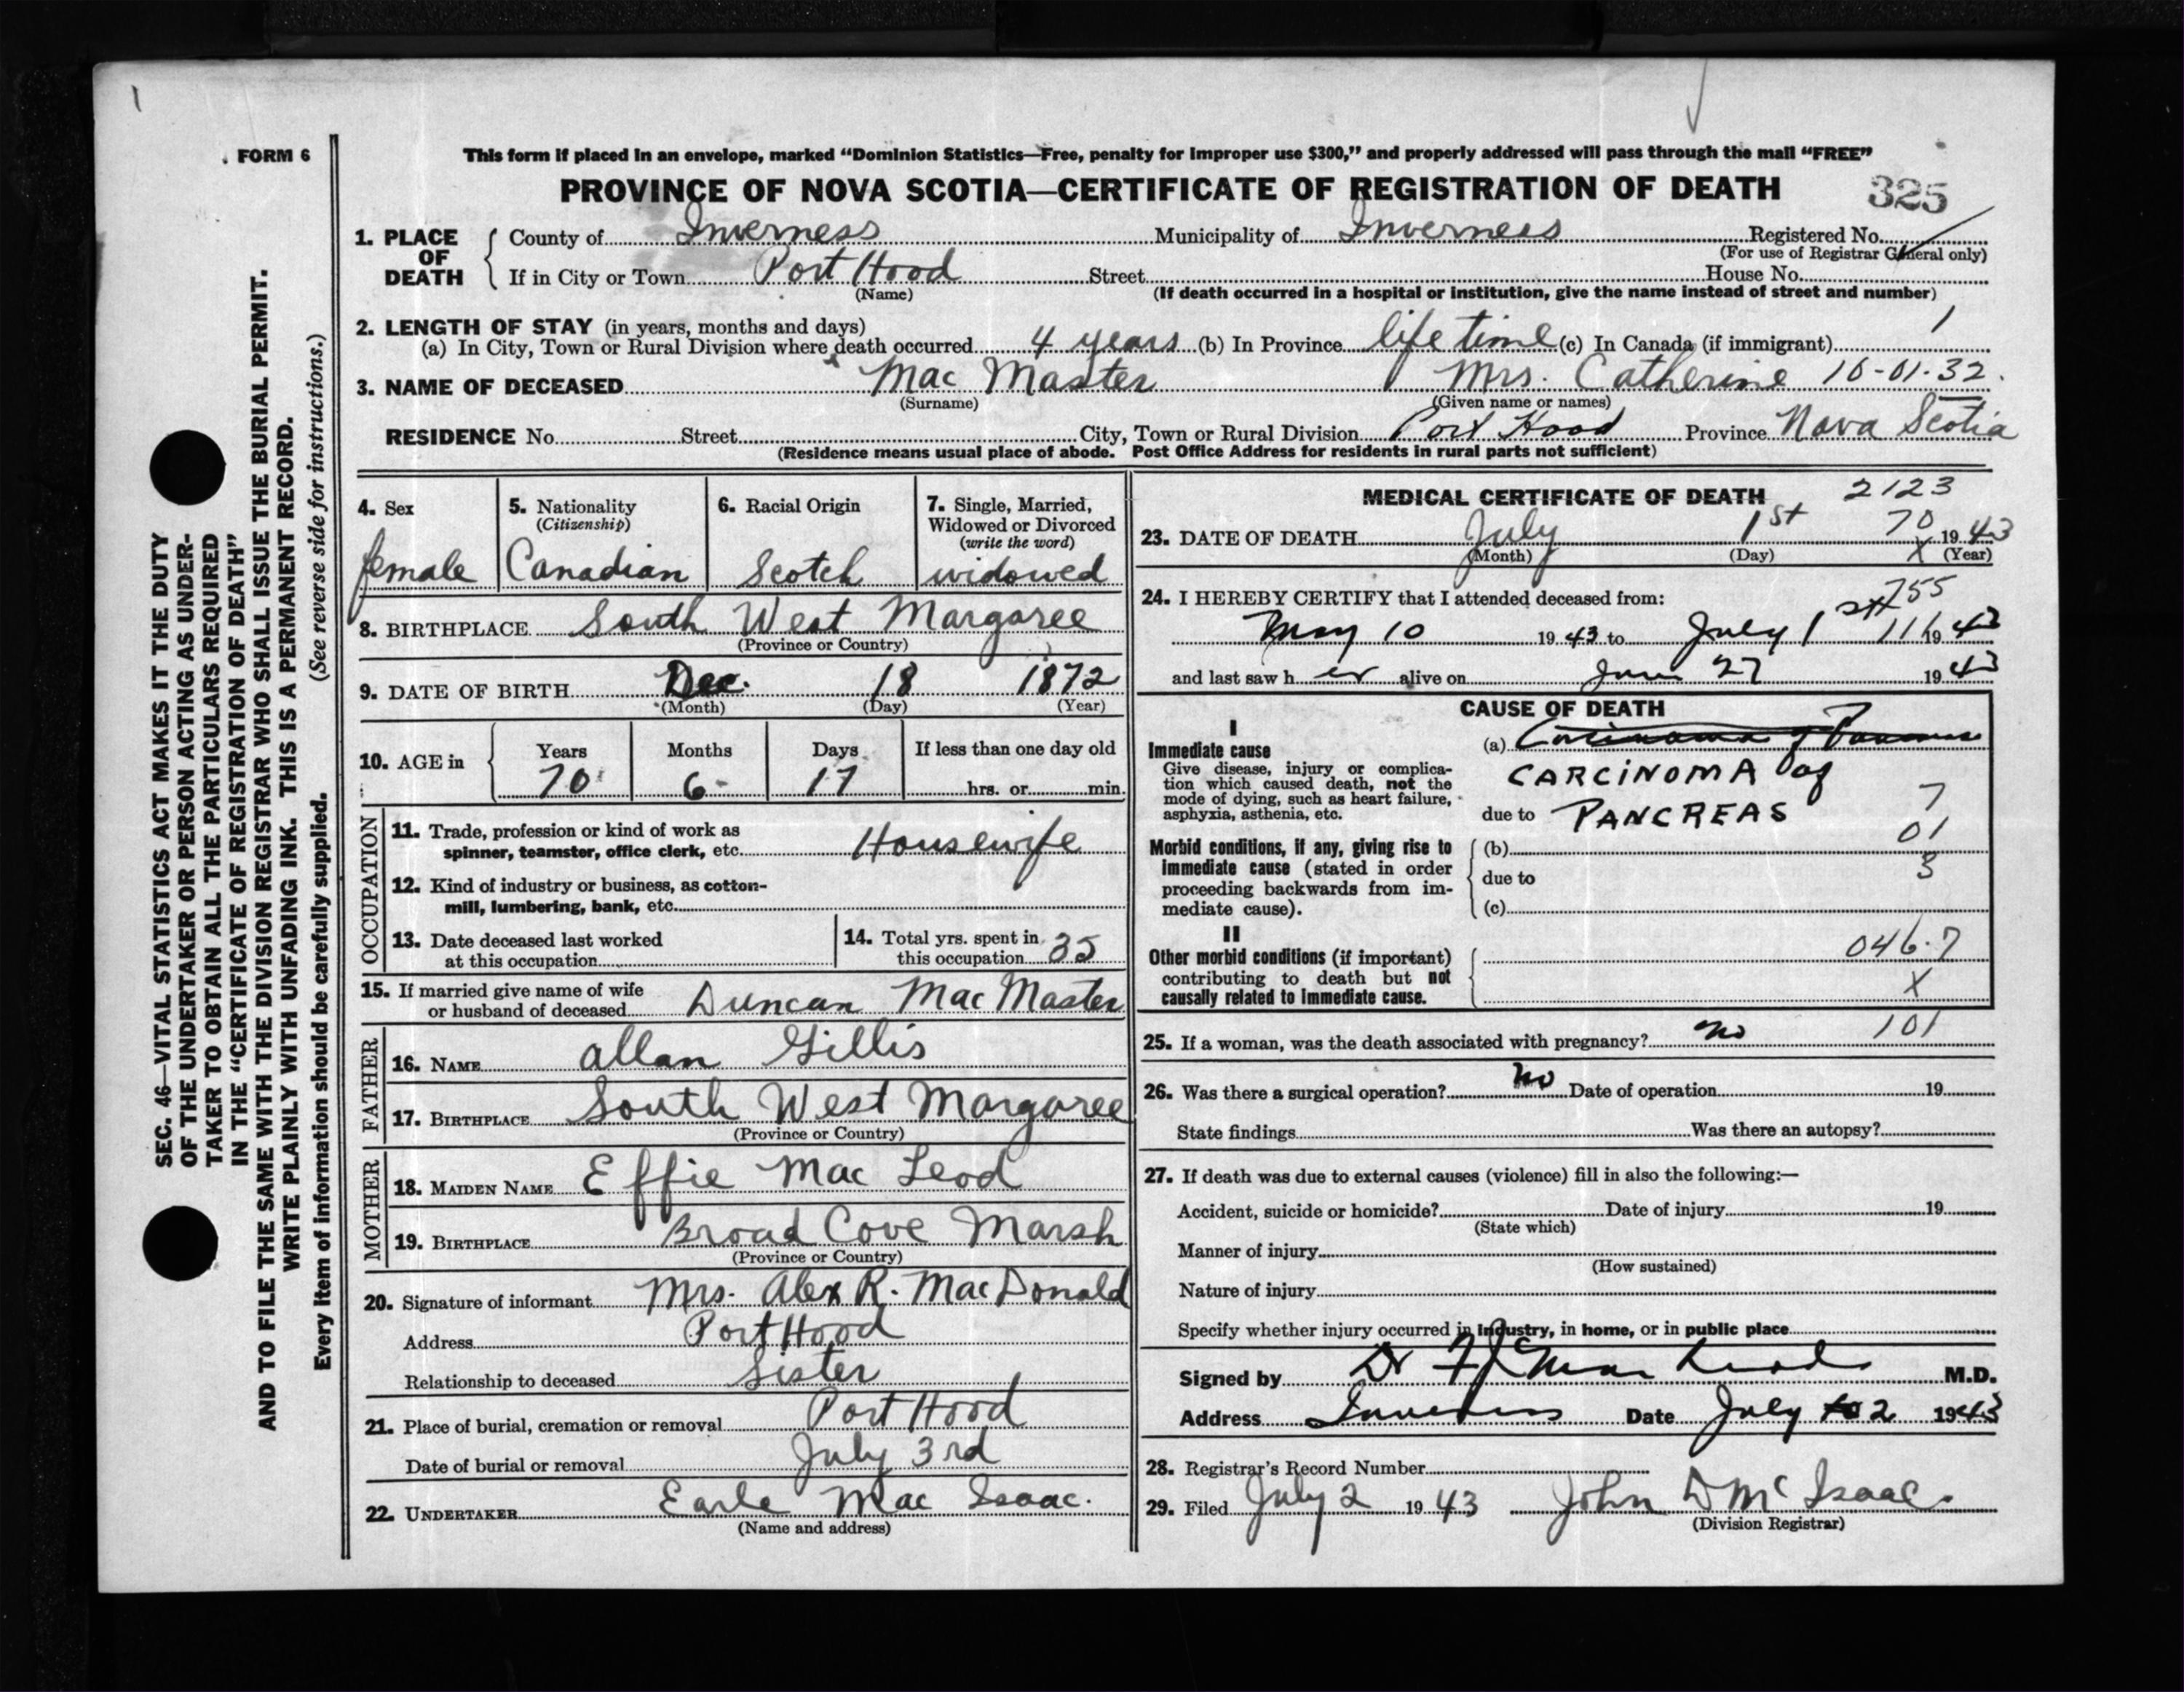 1
FORM 6
SEC. 46—VITAL STATISTICS ACT MAKES IT THE DUTY
OF THE UNDERTAKER OR PERSON ACTING AS UNDER-
TAKER TO OBTAIN ALL THE PARTICULARS REQUIRED
IN THE "CERTIFICATE OF REGISTRATION OF DEATH"
AND TO FILE THE SAME WITH THE DIVISION REGISTRAR WHO SHALL ISSUE THE BURIAL PERMIT.
WRITE PLAINLY WITH UNFADING INK. THIS IS A PERMANENT RECORD.
Every item of information should be carefully supplied. (See reverse side for instructions.)
This form if placed in an envelope, marked "Dominion Statistics—Free, penalty for improper use $300," and properly addressed will pass through the mail "FREE"
PROVINCE OF NOVA SCOTIA—CERTIFICATE OF REGISTRATION OF DEATH 325
1. PLACE OF DEATH County of Inverness Municipality of Inverness Registered No.
(For use of Registrar General only)
If in City or Town Port Hood Street House No.
(Name) (If death occurred in a hospital or institution, give the name instead of street and number)
2. LENGTH OF STAY (in years, months and days)
(a) In City, Town or Rural Division where death occurred 4 years (b) In Province life time (c) In Canada (if immigrant)
3. NAME OF DECEASED Mac Master Mrs. Catherine 16-01-32
(Surname) (Given name or names)
RESIDENCE No. Street City, Town or Rural Division Port Hood Province Nova Scotia
(Residence means usual place of abode. Post Office Address for residents in rural parts not sufficient)
4. Sex 5. Nationality (Citizenship) 6. Racial Origin 7. Single, Married, Widowed or Divorced (write the word)
female Canadian Scotch widowed
8. BIRTHPLACE South West Margaree
(Province or Country)
9. DATE OF BIRTH Dec. 18 1872
(Month) (Day) (Year)
10. AGE in Years Months Days If less than one day old
70 6 17 hrs. or min.
OCCUPATION
11. Trade, profession or kind of work as
spinner, teamster, office clerk, etc. Housewife
12. Kind of industry or business, as cotton-
mill, lumbering, bank, etc.
13. Date deceased last worked
at this occupation
14. Total yrs. spent in
this occupation 35
15. If married give name of wife
or husband of deceased Duncan Mac Master
FATHER
16. NAME Allan Gillis
17. BIRTHPLACE South West Margaree
(Province or Country)
MOTHER
18. MAIDEN NAME Effie Mac Leod
19. BIRTHPLACE Broad Cove Marsh
(Province or Country)
20. Signature of informant Mrs. Alex R. MacDonald
Address Port Hood
Relationship to deceased Sister
21. Place of burial, cremation or removal Port Hood
Date of burial or removal July 3rd
22. UNDERTAKER Earle Mac Isaac.
(Name and address)
MEDICAL CERTIFICATE OF DEATH 2123
23. DATE OF DEATH July 1st 70 1943
(Month) (Day) X (Year)
24. I HEREBY CERTIFY that I attended deceased from: 755
May 10 1943 to July 1st 11 1943
and last saw her alive on June 27 1943
CAUSE OF DEATH
I
Immediate cause
Give disease, injury or complica-
tion which caused death, not the
mode of dying, such as heart failure,
asphyxia, asthenia, etc.
(a) Carcinoma of
CARCINOMA of
due to PANCREAS 7
Morbid conditions, if any, giving rise to
immediate cause (stated in order
proceeding backwards from im-
mediate cause).
(b) 01
due to 3
(c)
II
Other morbid conditions (if important)
contributing to death but not
causally related to immediate cause.
046.7
X
25. If a woman, was the death associated with pregnancy? no 101
26. Was there a surgical operation? No Date of operation 19
State findings Was there an autopsy?
27. If death was due to external causes (violence) fill in also the following:—
Accident, suicide or homicide? Date of injury 19
(State which)
Manner of injury
(How sustained)
Nature of injury
Specify whether injury occurred in industry, in home, or in public place
Signed by Dr M.D.
Address Inverness Date July 2 1943
28. Registrar's Record Number
29. Filed July 2 1943 John D Mc Isaac.
(Division Registrar)